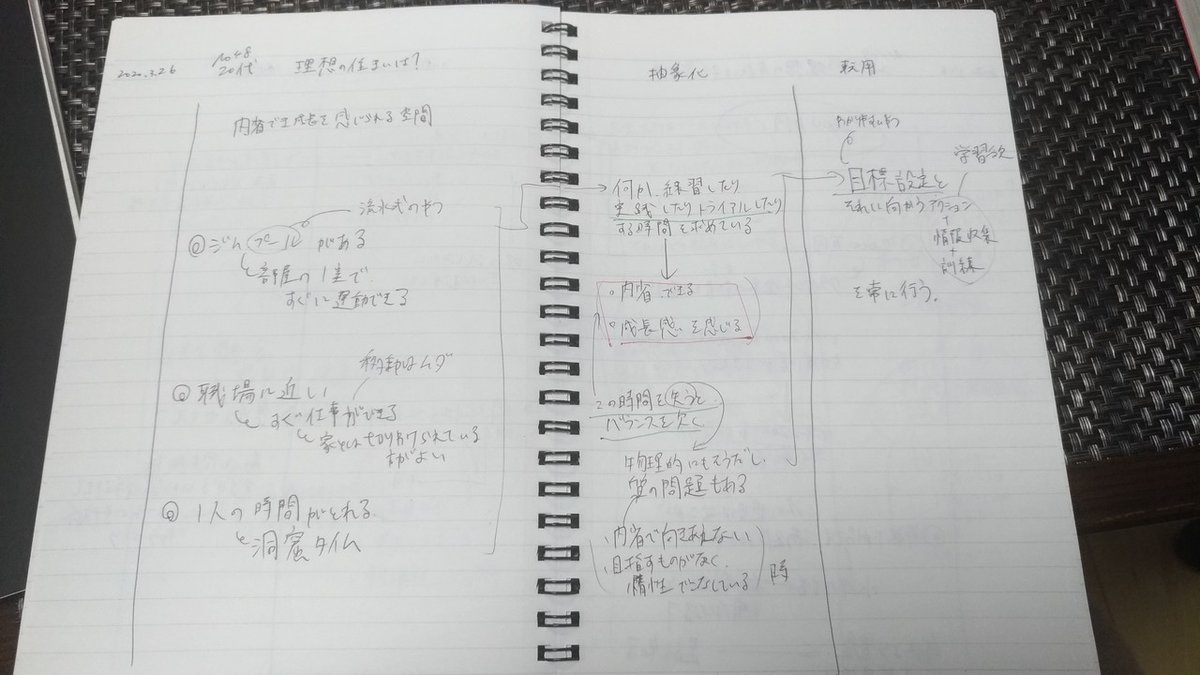 2020.3.26
No48
20代
理想の住まいは?
内省で生成長を感じられる空間
流水式のやつ
◎ジム プールがある
部屋の1室で
すぐに運動できる
移動はムダ
◎職場に近い
すぐ仕事ができる
家とは切り分けられている
方がよい
◎1人の時間がとれる
洞窟タイム
抽象化
何か、練習したり
実践したりトライアルしたり
する時間を求めている
・内省できる
・成長感を感じる
この時間を失うと
バランスを欠く
物理的にもそうだし、
質の問題もある
・内省で向きあえない
・目指すものがなく、
惰性でこなしている
時
転用
わかやすいやつ
学習欲
目標設定と
それに向かうアクション
+
情報収集
+
訓練
を常に行う。